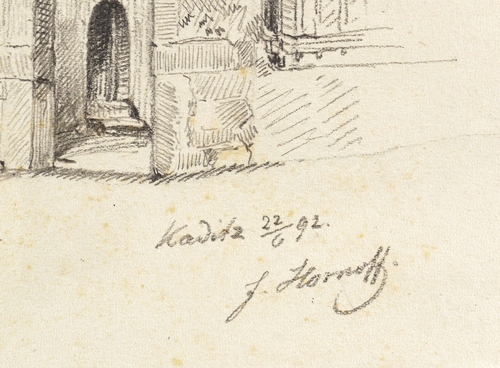 Kaditz 22/6 92.
J. Hornoff.